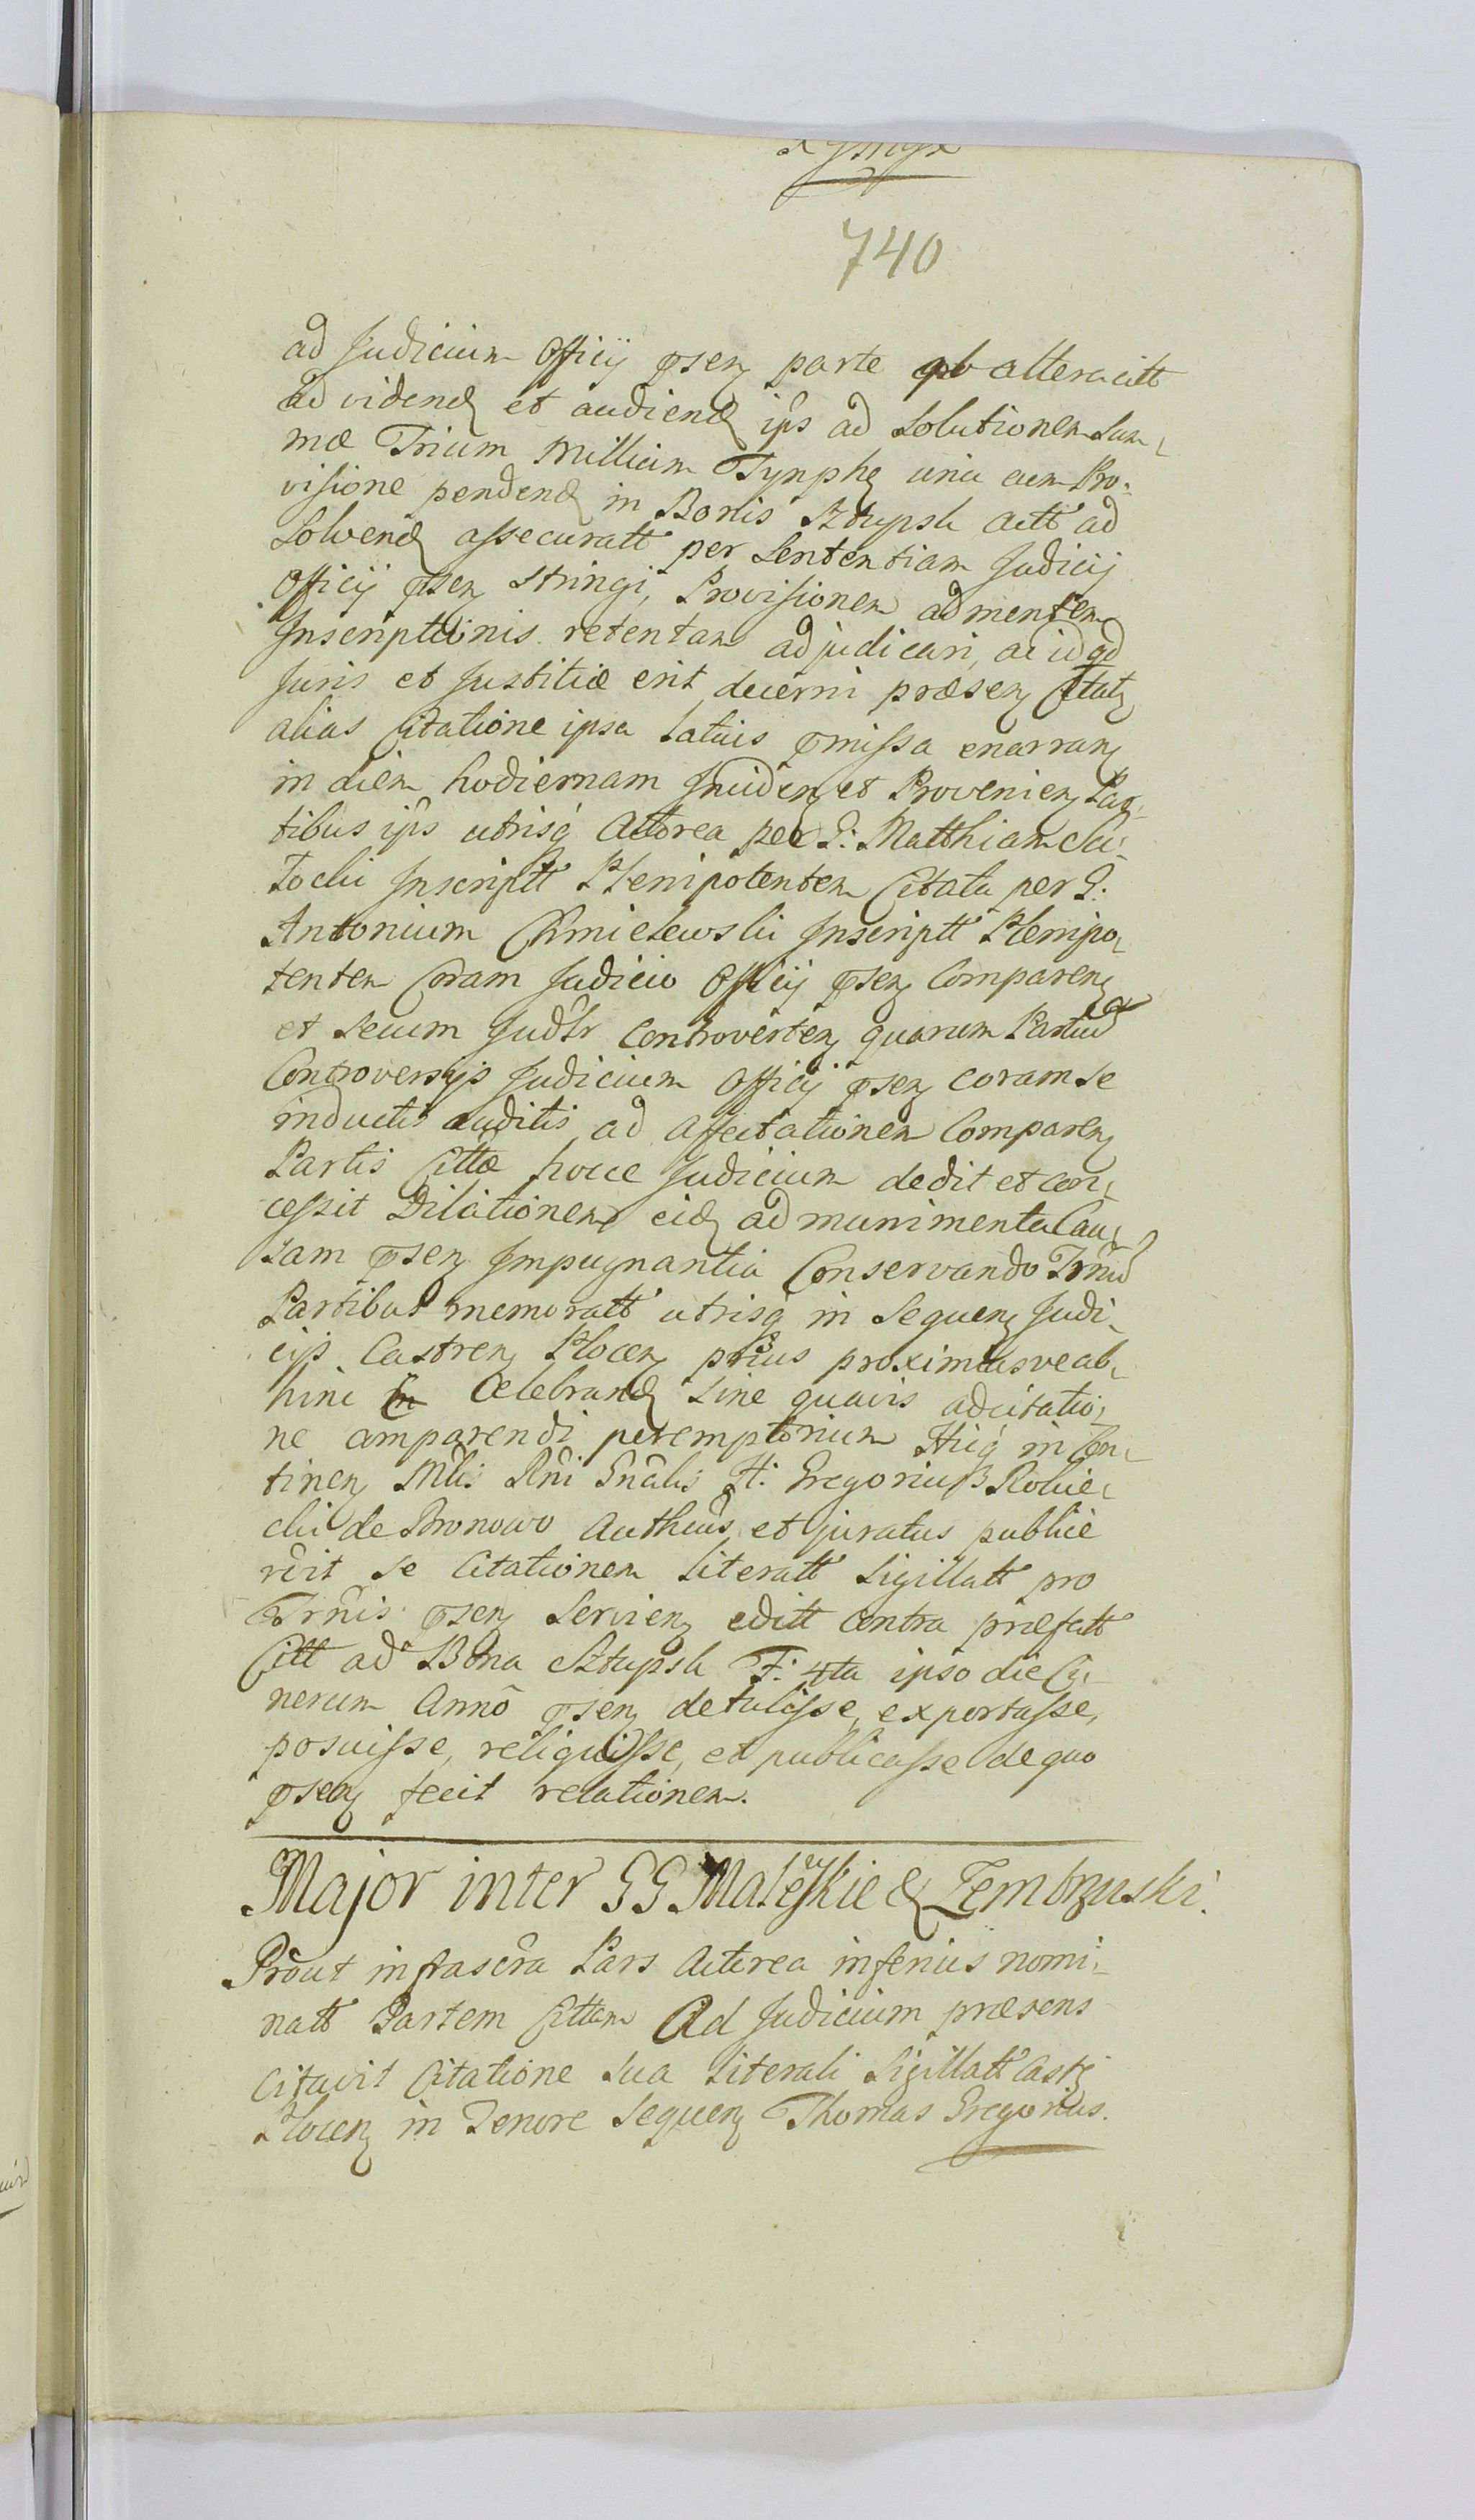 740
ad Judicium Officij psen parte ab altera citt
ad videnđ et audienđ ips ad Solutionem Sum-
mæ Trium Millium Tynph una cum Pro-
visione pendenđ in Bonis Sztupsk actt ad
Solvenđ assecuratt per Sententiam Judicij
Officij psen stringi, Provisionem ad mentem
Inscripttionis retentam adjudicari, ac id qd
Juris et Justitiæ erit decerni præsen Citat
alias Citatione ipsa latius pmissa enarran
in diem hodiernam Inciden et Provenien Par-
tibus ips utrisq Actorea per G: Matthiam
Inscriptt Plenipotentem Citata per G:
Antonium Chmielewski Inscriptt Plenipo-
tentem Coram Judicio Officij psen Comparen
et secum Judr Controverten quarum Partiu
Controversijs Judicium Officij psen coram se
inductis auditis, ad affectationem Comparen
Partis Cittæ hocce Judicium dedit et con-
cessit Dilationem eid ad munimenta Cau-
sam psen Impugnantia Conservando Trnu
Partibus memoratt utrisq in Sequen Judi-
cijs Castren Plocen prius proximiusve ab-
hinc Celebranđ Sine quavis adcitatio-
ne comparendi peremptorium Hicq in Con-
tinen Mtis Rni Gnalis H: Gregorius Rokic-
cki de Bronowo Autheus et juratus publice
rcit se Citationem literatt Sigillatt pro
Trnis psen Servien editt contra præfatt
Citt ad Bona Sztupsk F: 4ta ipso die Ci-
nerum Anno psen detulisse, exportasse,
posuisse, reliquisse, et publicasse de quo
psen fecit relationem.
Major inter GG Maleskie & Zembrzuski.
Prout infrascra Pars Actorea inferius nomi-
natt Partem Cittam Ad Judicium præsens
Citavit Citatione Sua Literali Sigillatt Cast
Plocen in Tenore Sequen Thomas Gregorius.